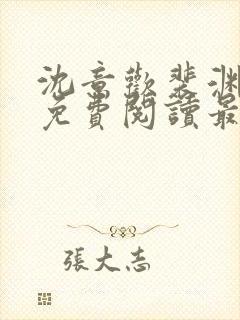 沈意歡裴渊
免費閱讀最
張大志